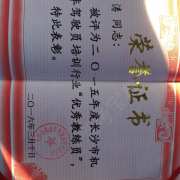 荣誉证书
洁 同志：
被评为二〇一五年度长沙市机
车驾驶员培训行业“优秀教练员”
特此表彰。
二〇一六年三月十日